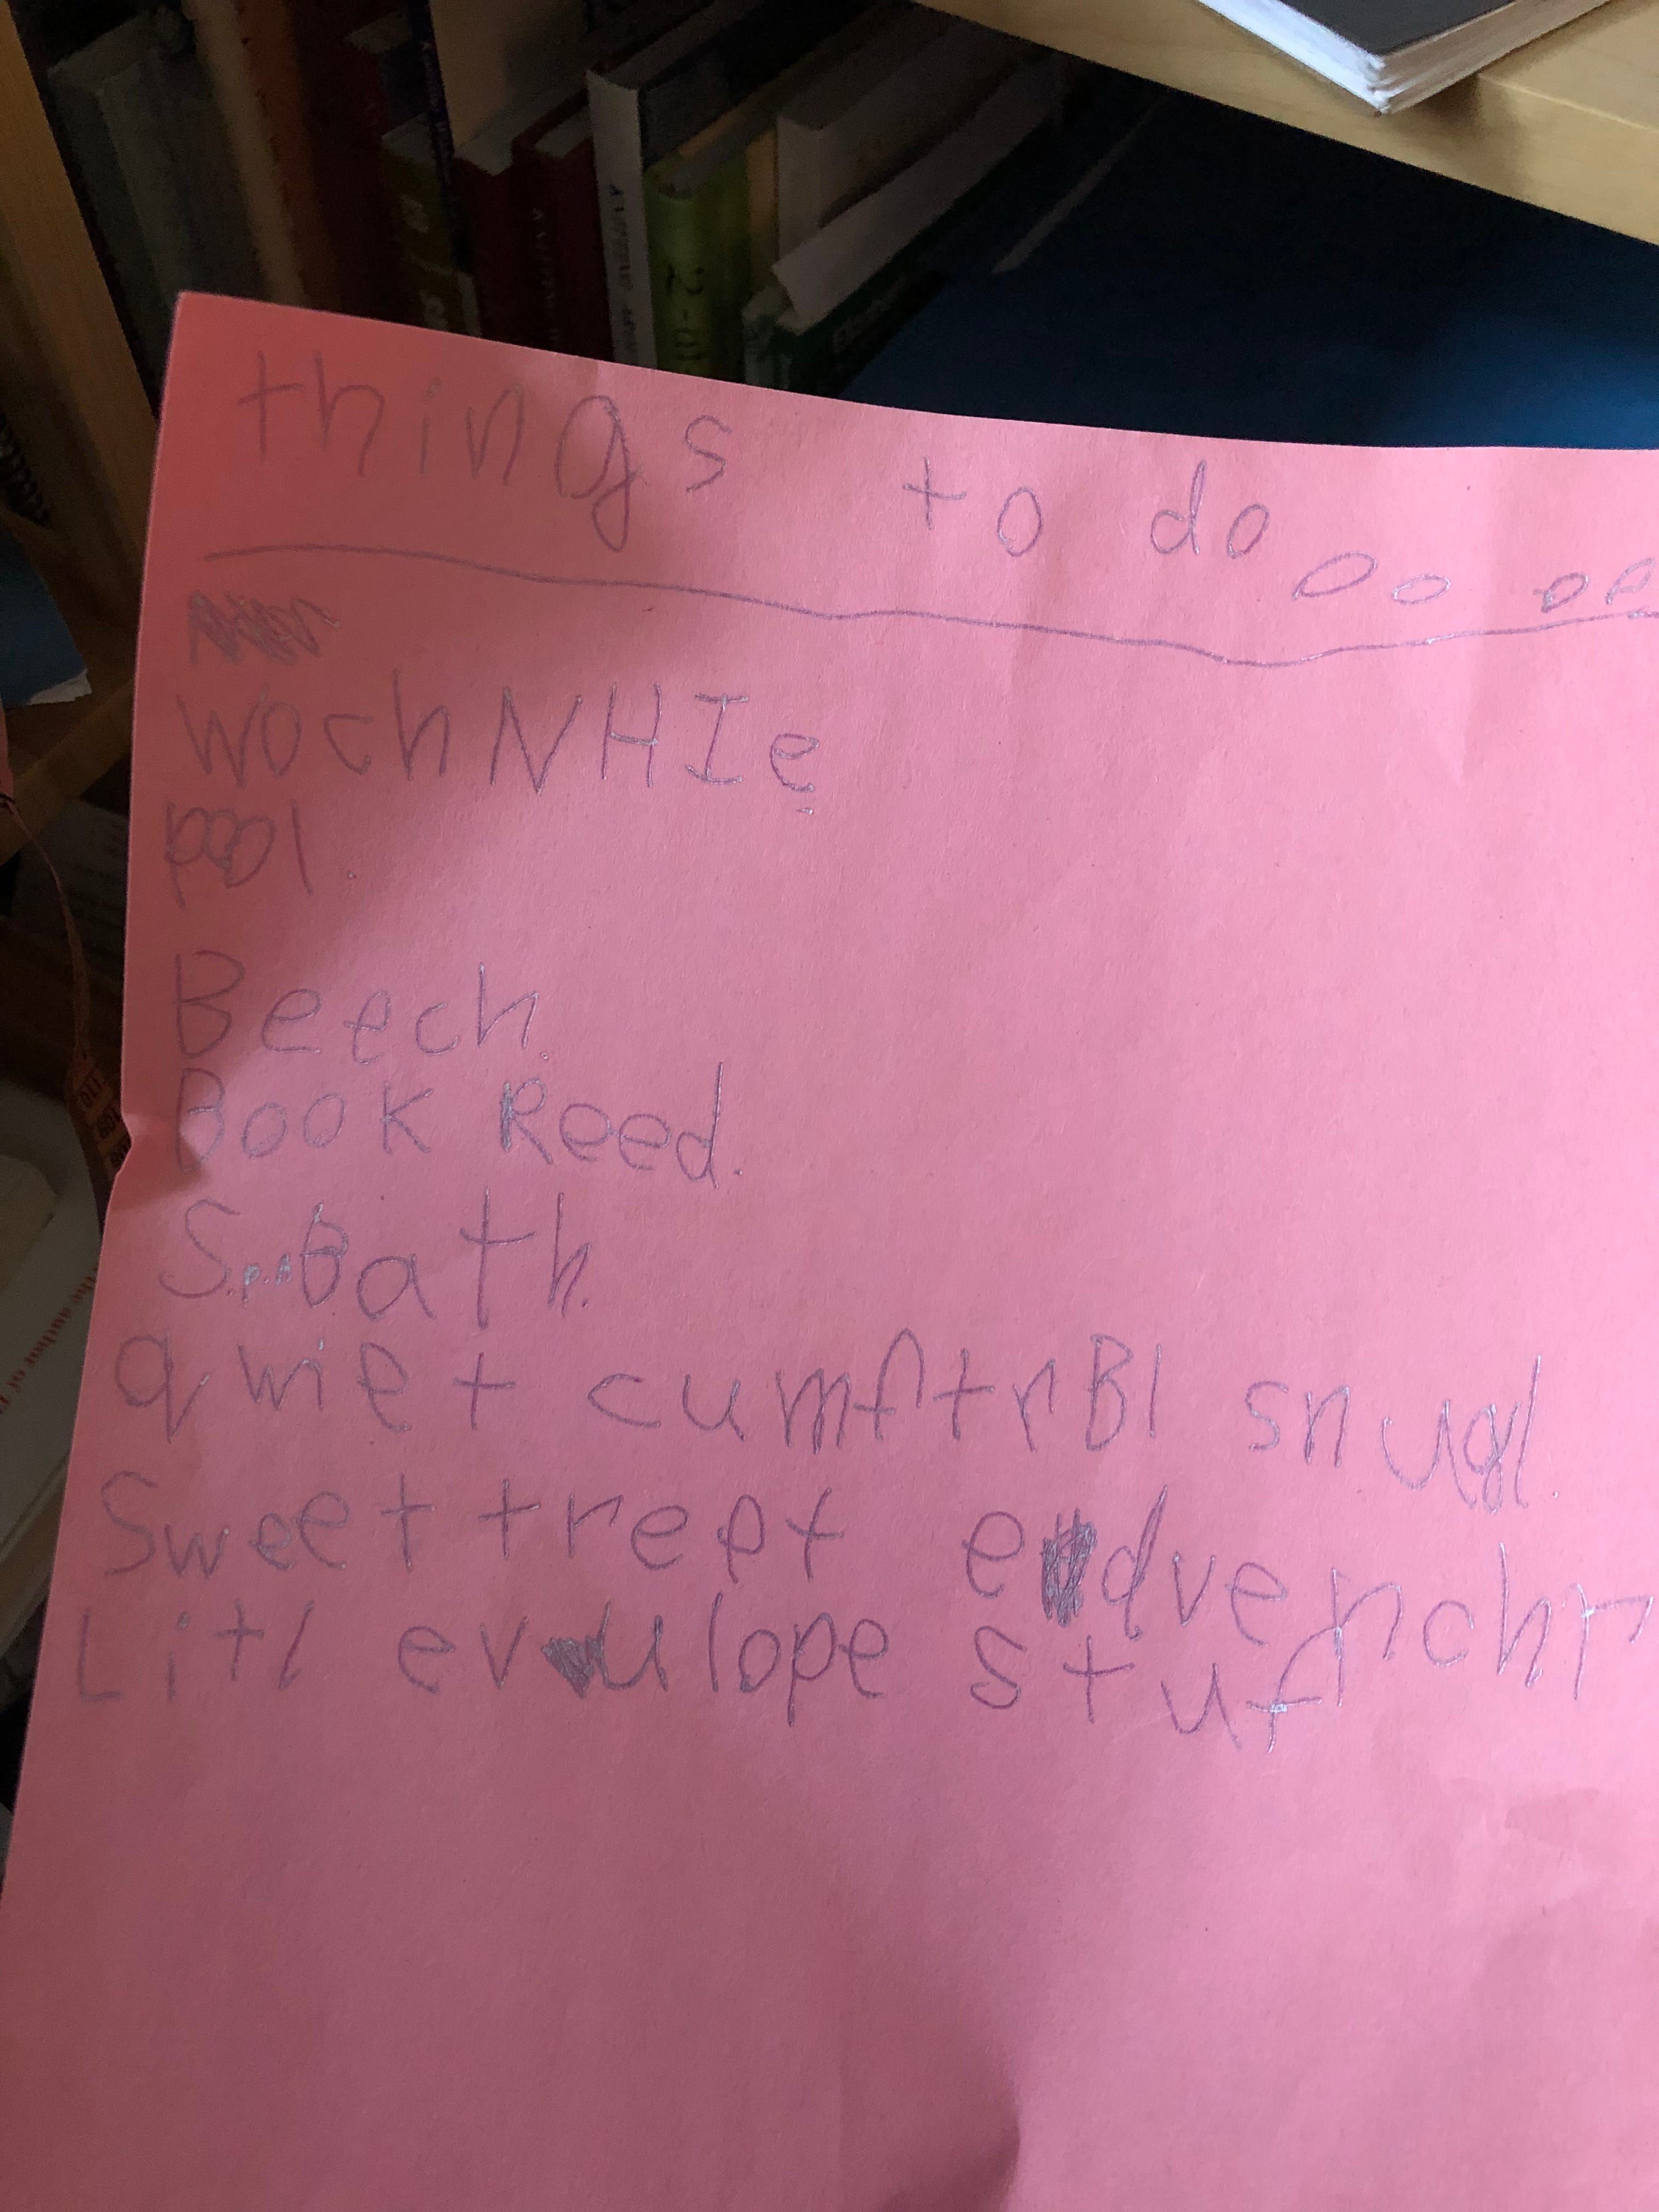 things to do
woch NHIe
pool.
Beech.
Book Reed.
S... Bath.
qwiet cumftrBl snugl.
Sweet treet edvenchr
Litl evulope stuf